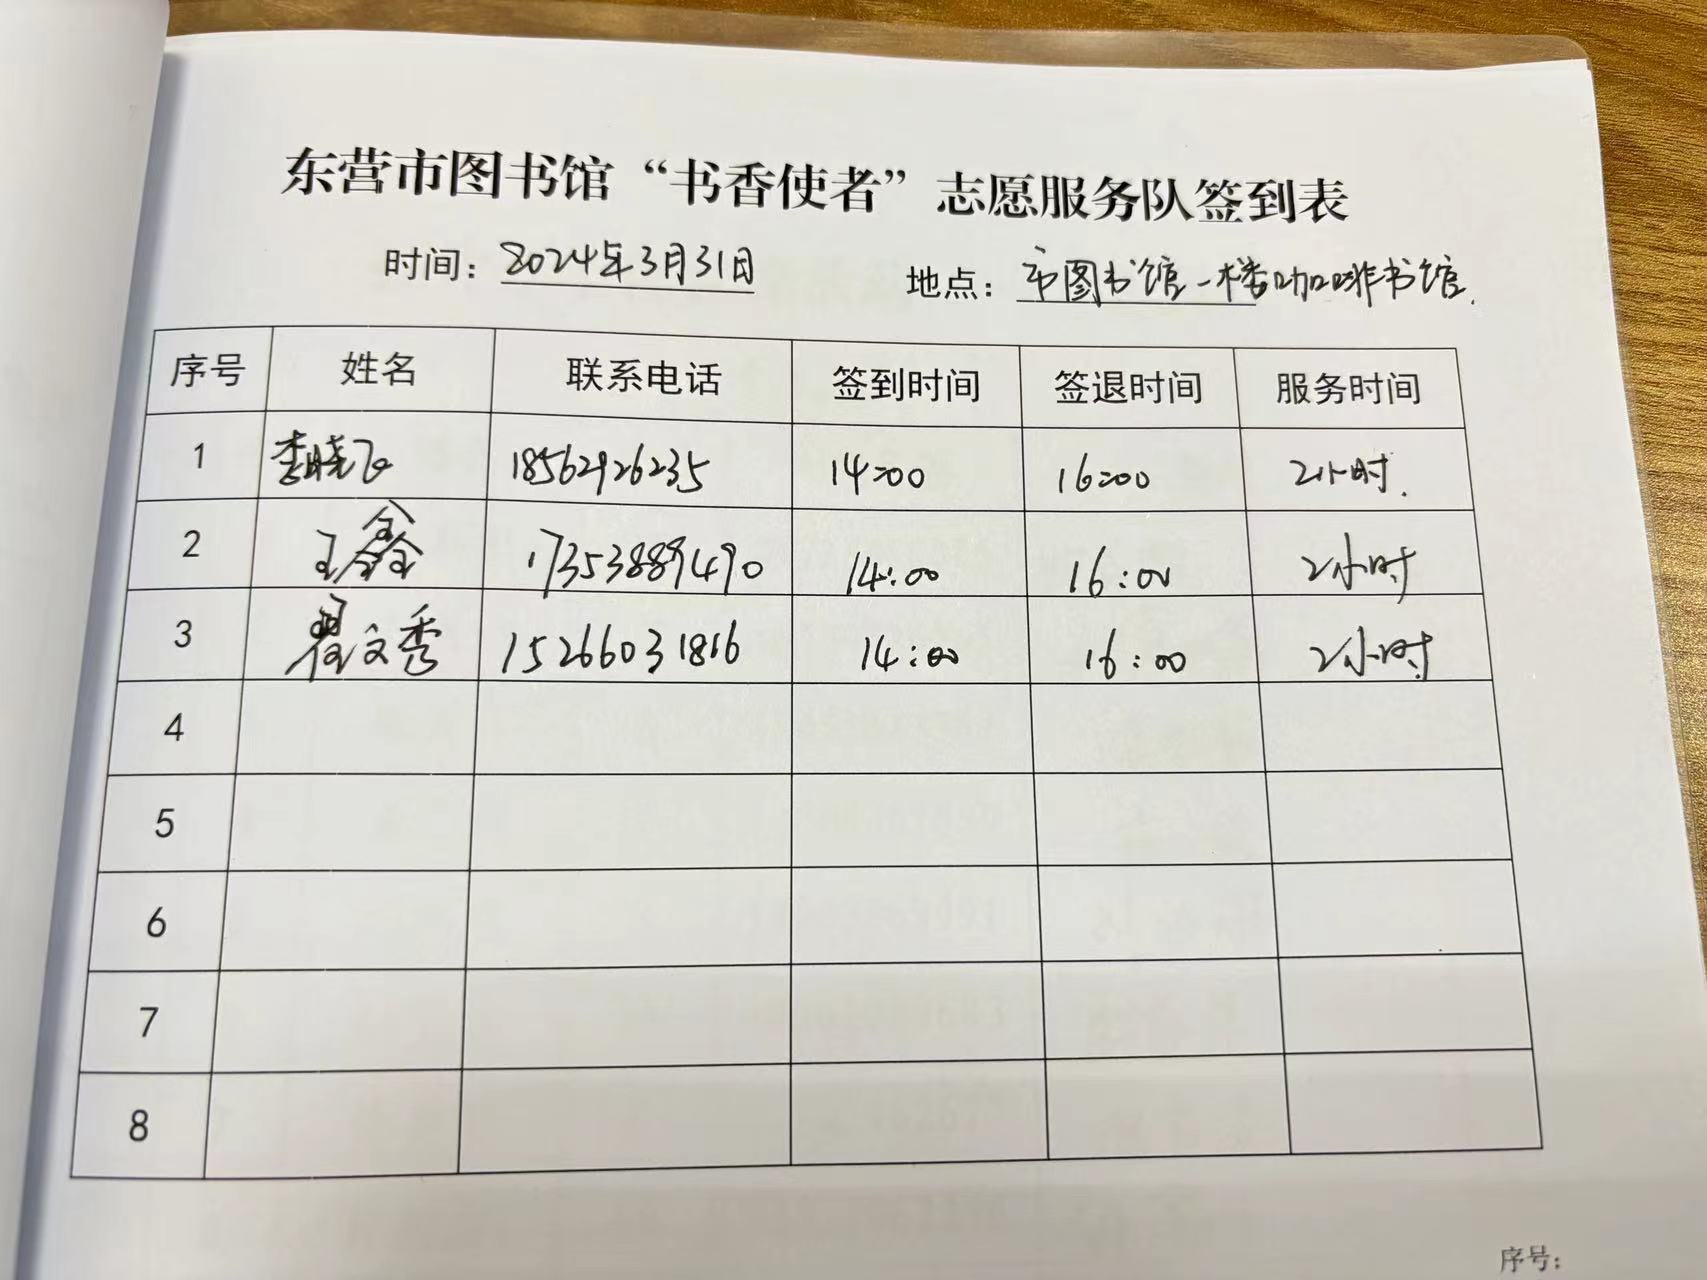 东营市图书馆“书香使者”志愿服务队签到表
时间：2024年3月31日 地点：市图书馆一楼咖啡书馆.
序号 姓名 联系电话 签到时间 签退时间 服务时间
1 李晓飞 18562926235 14:00 16:00 2小时.
2 王鑫 17353889490 14:00 16:00 2小时
3 翟文秀 15266031816 14:00 16:00 2小时
4
5
6
7
8
序号：